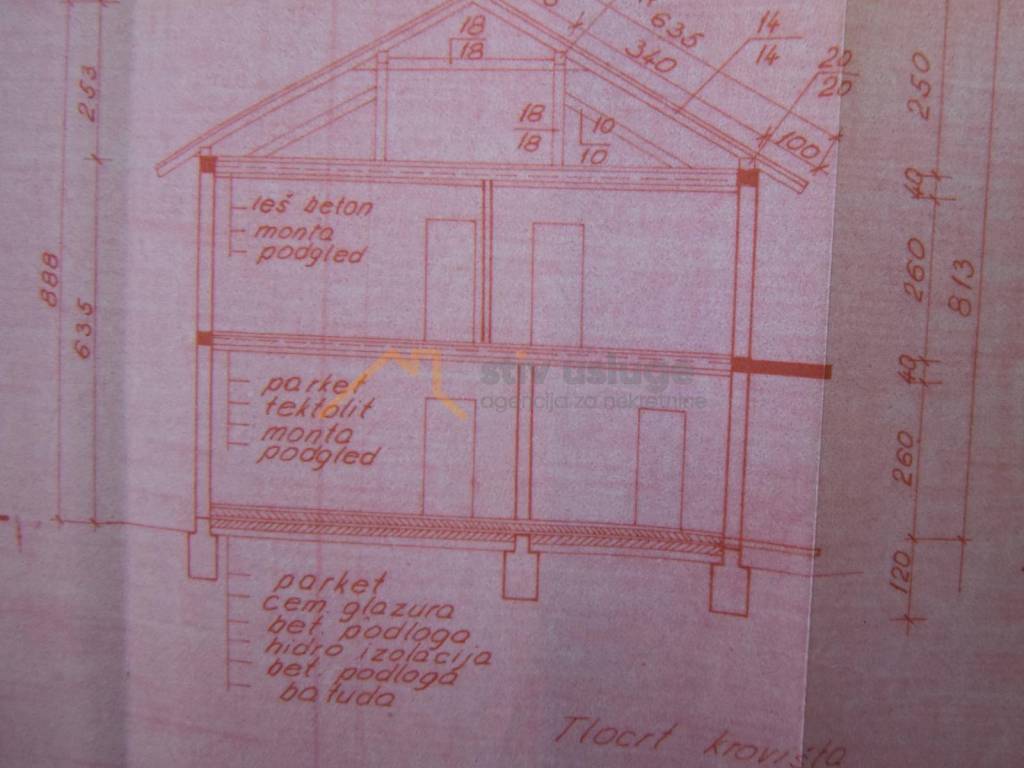 18
18
635
340
14
14
20
20
100
18
18
10
10
253
888
635
250
40
260
813
40
260
120
leš beton
monta
podgled
stiv usluge
agencija za nekretnine
parket
tektolit
monta
podgled
parket
cem. glazura
bet. podloga
hidro izolacija
bet. podloga
batuda
Tlocrt krovišta